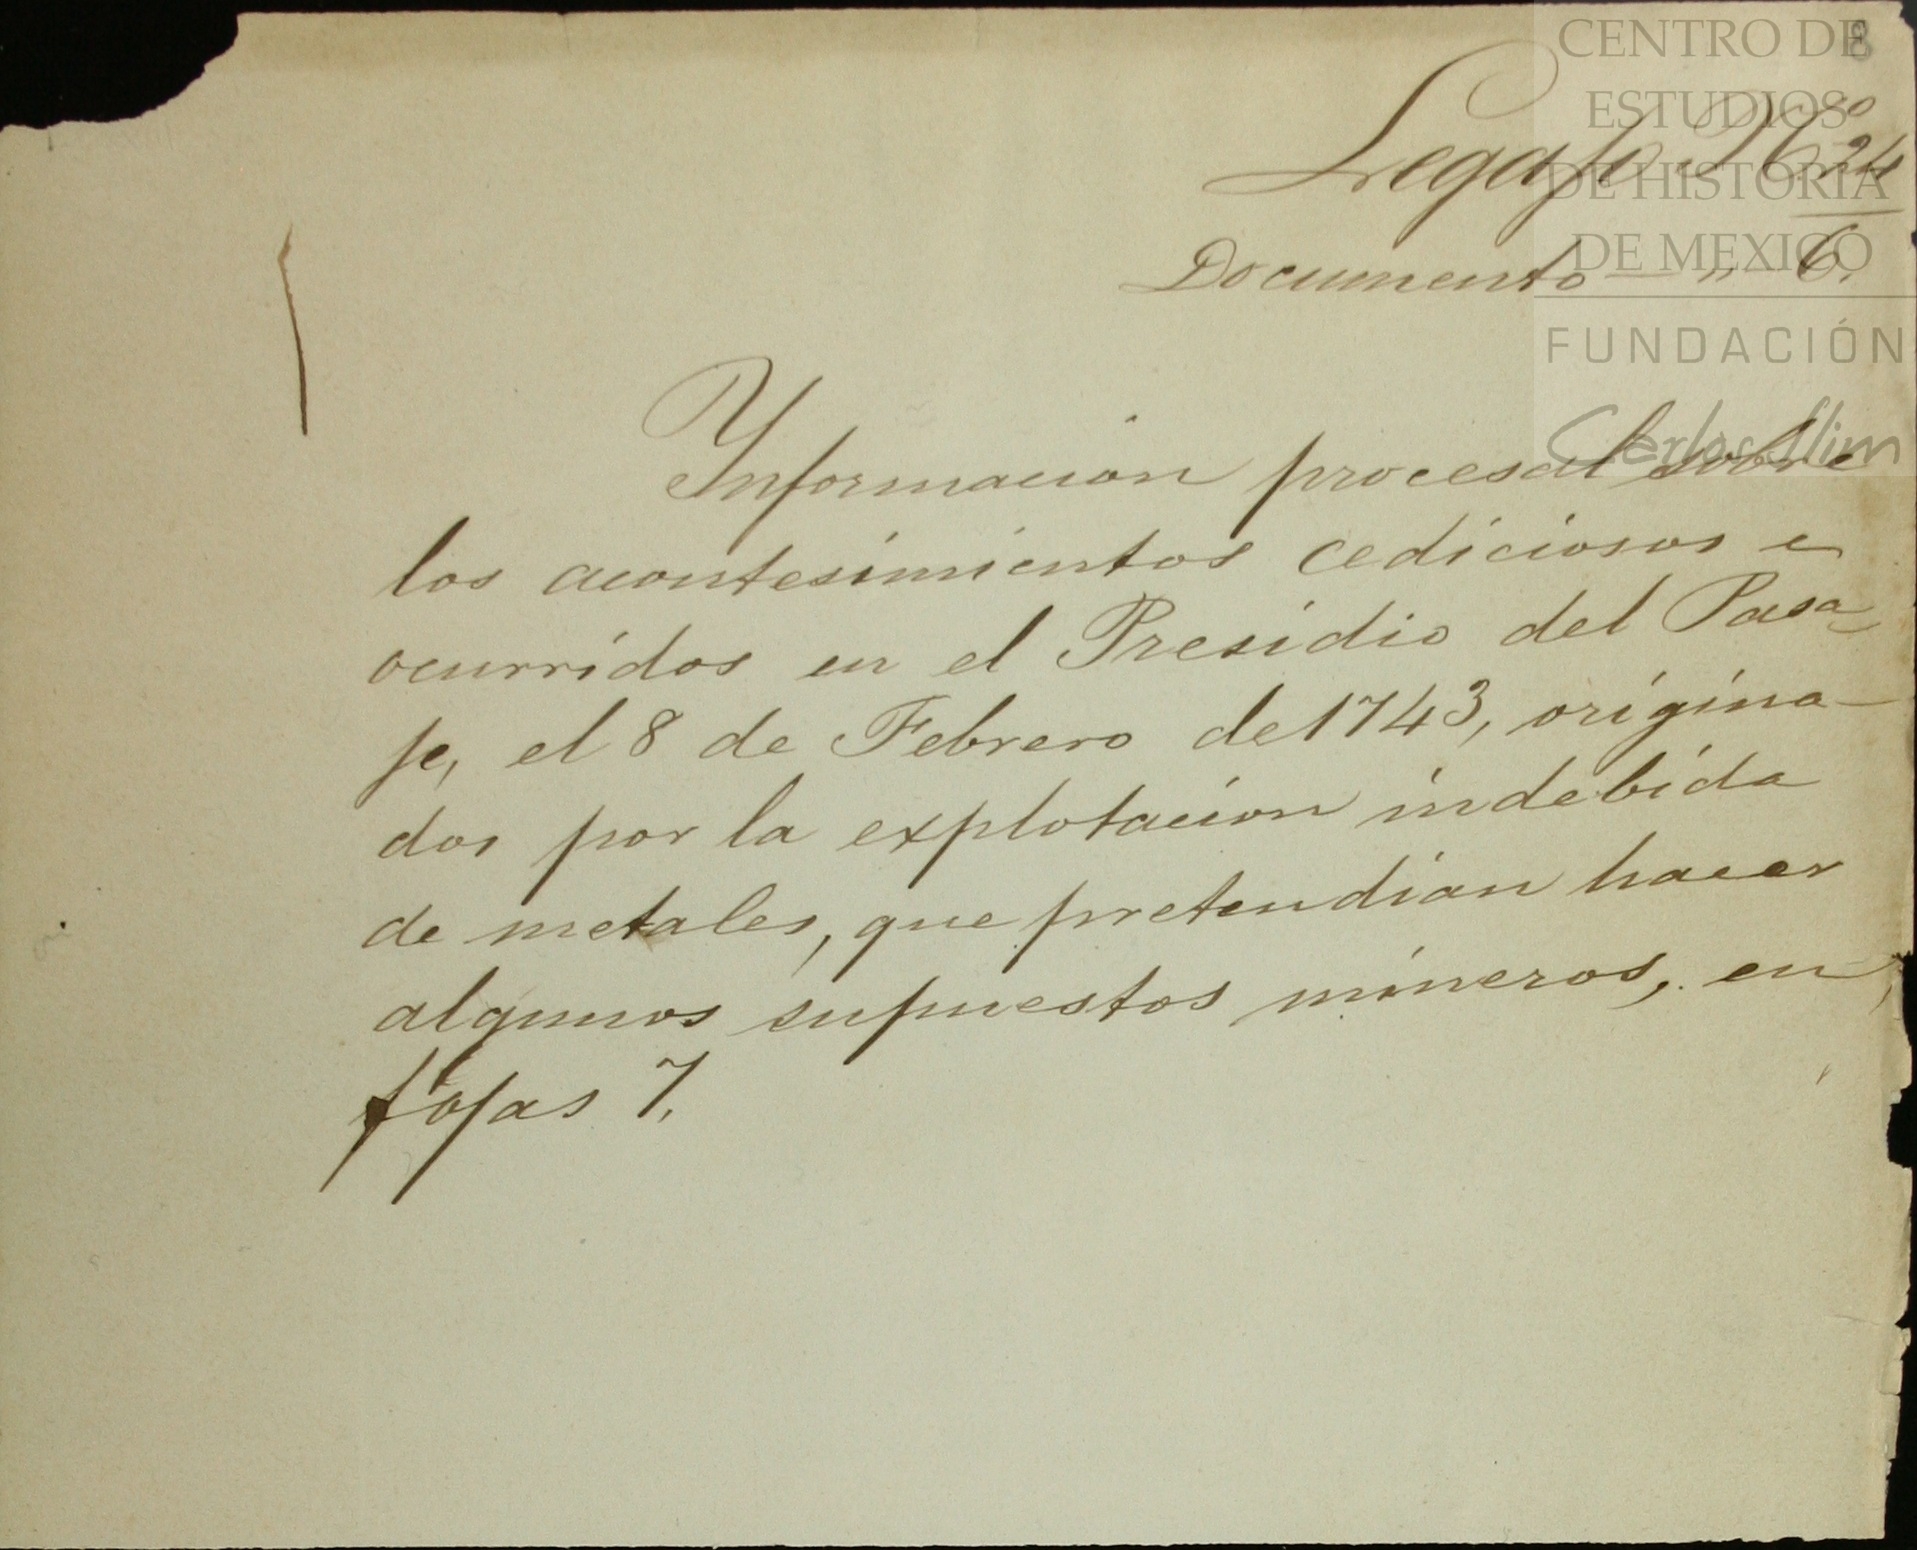 8
CENTRO DE
ESTUDIOS
DE HISTORIA
DE MEXICO
FUNDACIÓN
Carlos Slim
Legajo N.º 24
Documento — " 6.
Ynformacion procesal sobre
los acontesimientos cediciosos e
ocurridos en el Presidio del Pasa-
je, el 8 de Febrero de 1743, origina-
dos por la explotacion indebida
de metales, que pretendian hacer
algunos supuestos mineros, en
fojas 7.